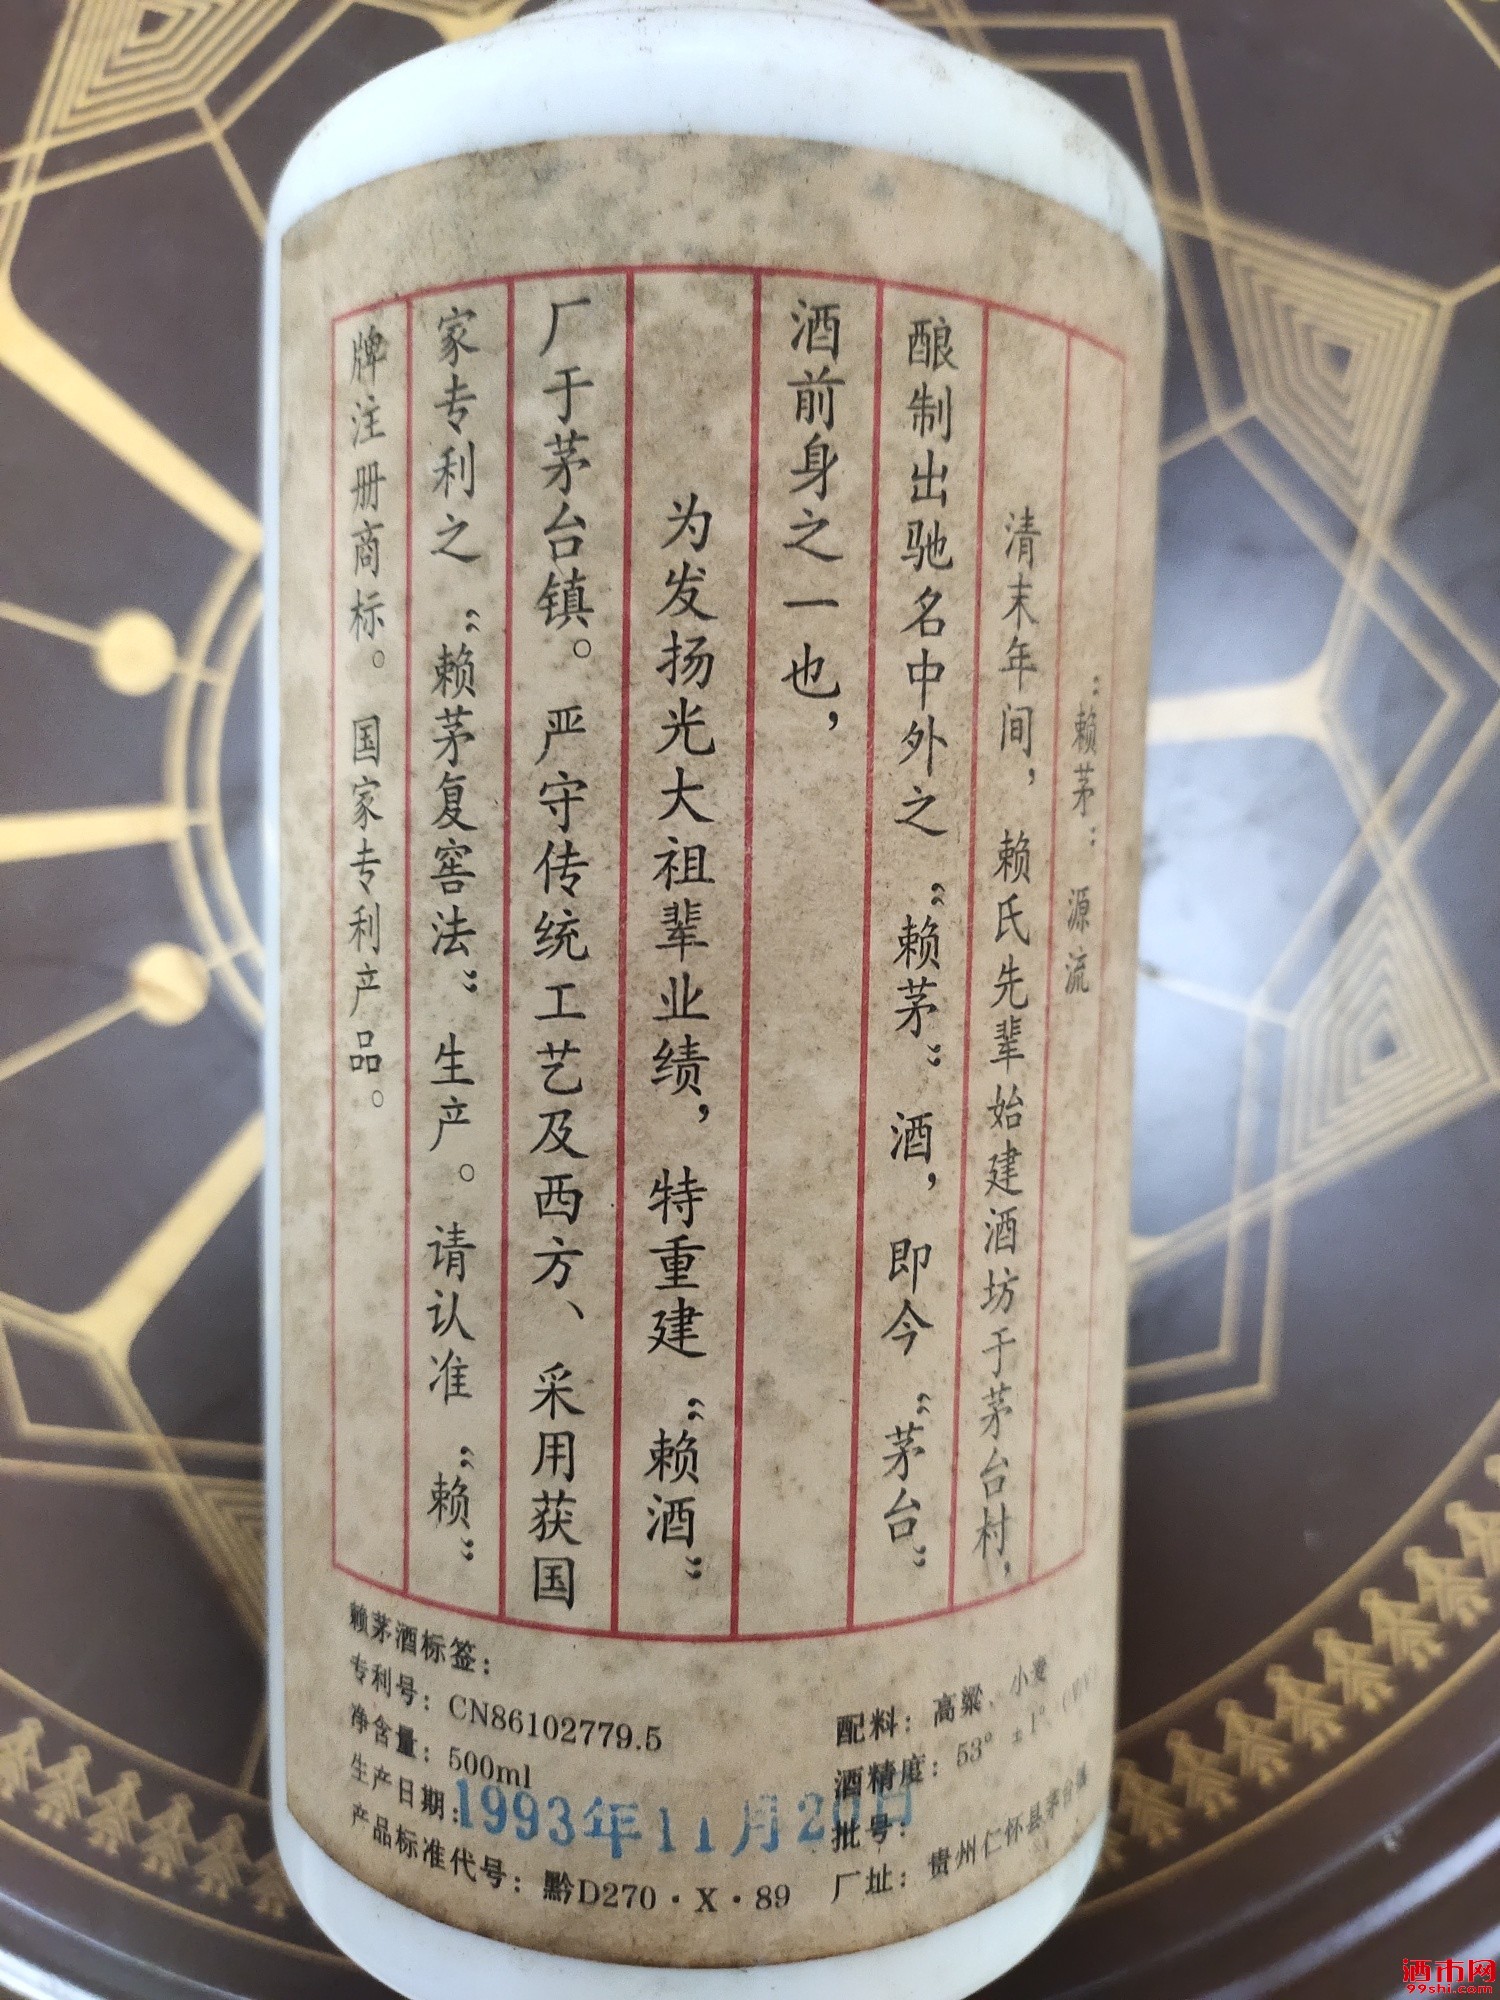 :赖茅: 源流
清末年间，赖氏先辈始建酒坊于茅台村，
酿制出驰名中外之“赖茅”酒，即今“茅台”
酒前身之一也，
为发扬光大祖辈业绩，特重建“赖酒”
厂于茅台镇。严守传统工艺及西方、采用获国
家专利之“赖茅复窖法”生产。请认准“赖”
牌注册商标。国家专利产品。
赖茅酒标签：
专利号：CN86102779.5
净含量：500ml
生产日期：1993年11月20日
产品标准代号：黔D270·X·89
配料：高粱、小麦
酒精度：53°±1°(V/V)
批号：
厂址：贵州仁怀县茅台镇
酒市网
99shi.com